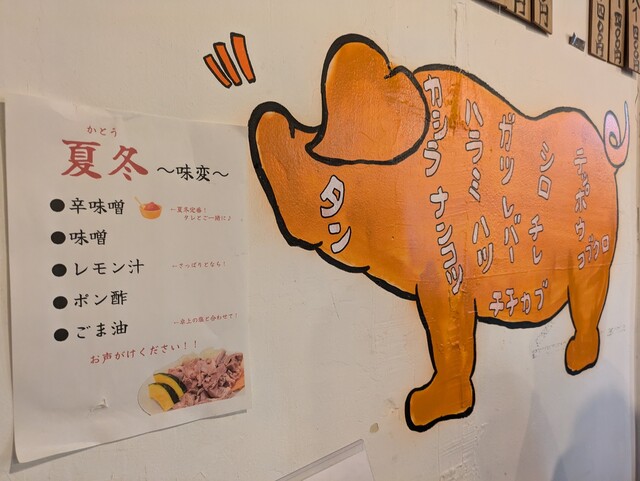 かとう
夏冬 〜味変〜
●辛味噌
←夏冬定番!
タレとご一緒に♪
●味噌
●レモン汁
←さっぱりとなら!
●ポン酢
●ごま油
←卓上の塩と合わせて!
お声がけください!!
タン
カシラ
ナンコツ
ハラミ
ハツ
ガツ
レバー
シロ
チレ
チチカブ
テッポウ
コブクロ